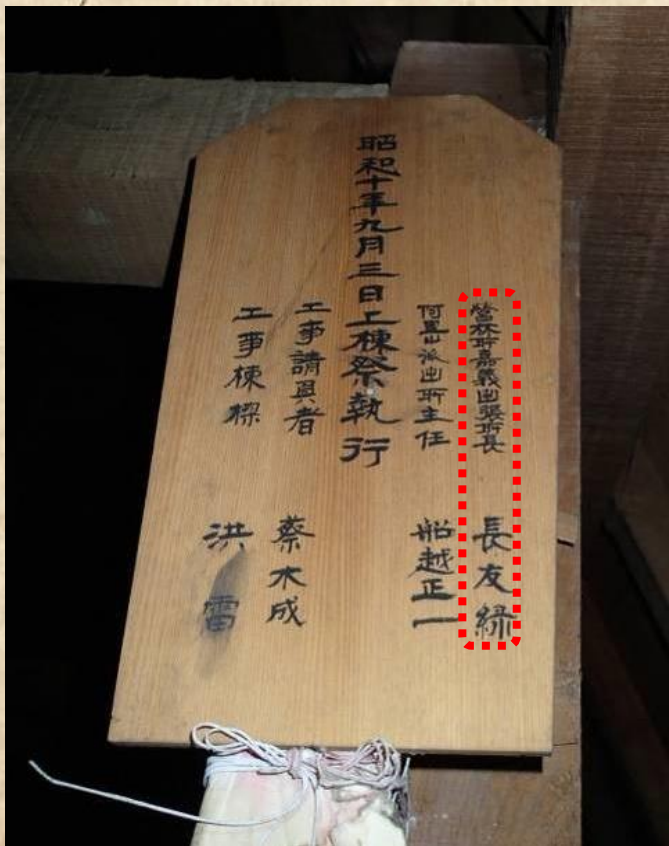 營林所嘉義出張所長 長友緑
阿里山派出所主任 船越正一
昭和十年九月三日上棟祭執行
工事請負者 蔡木成
工事棟樑 洪雷